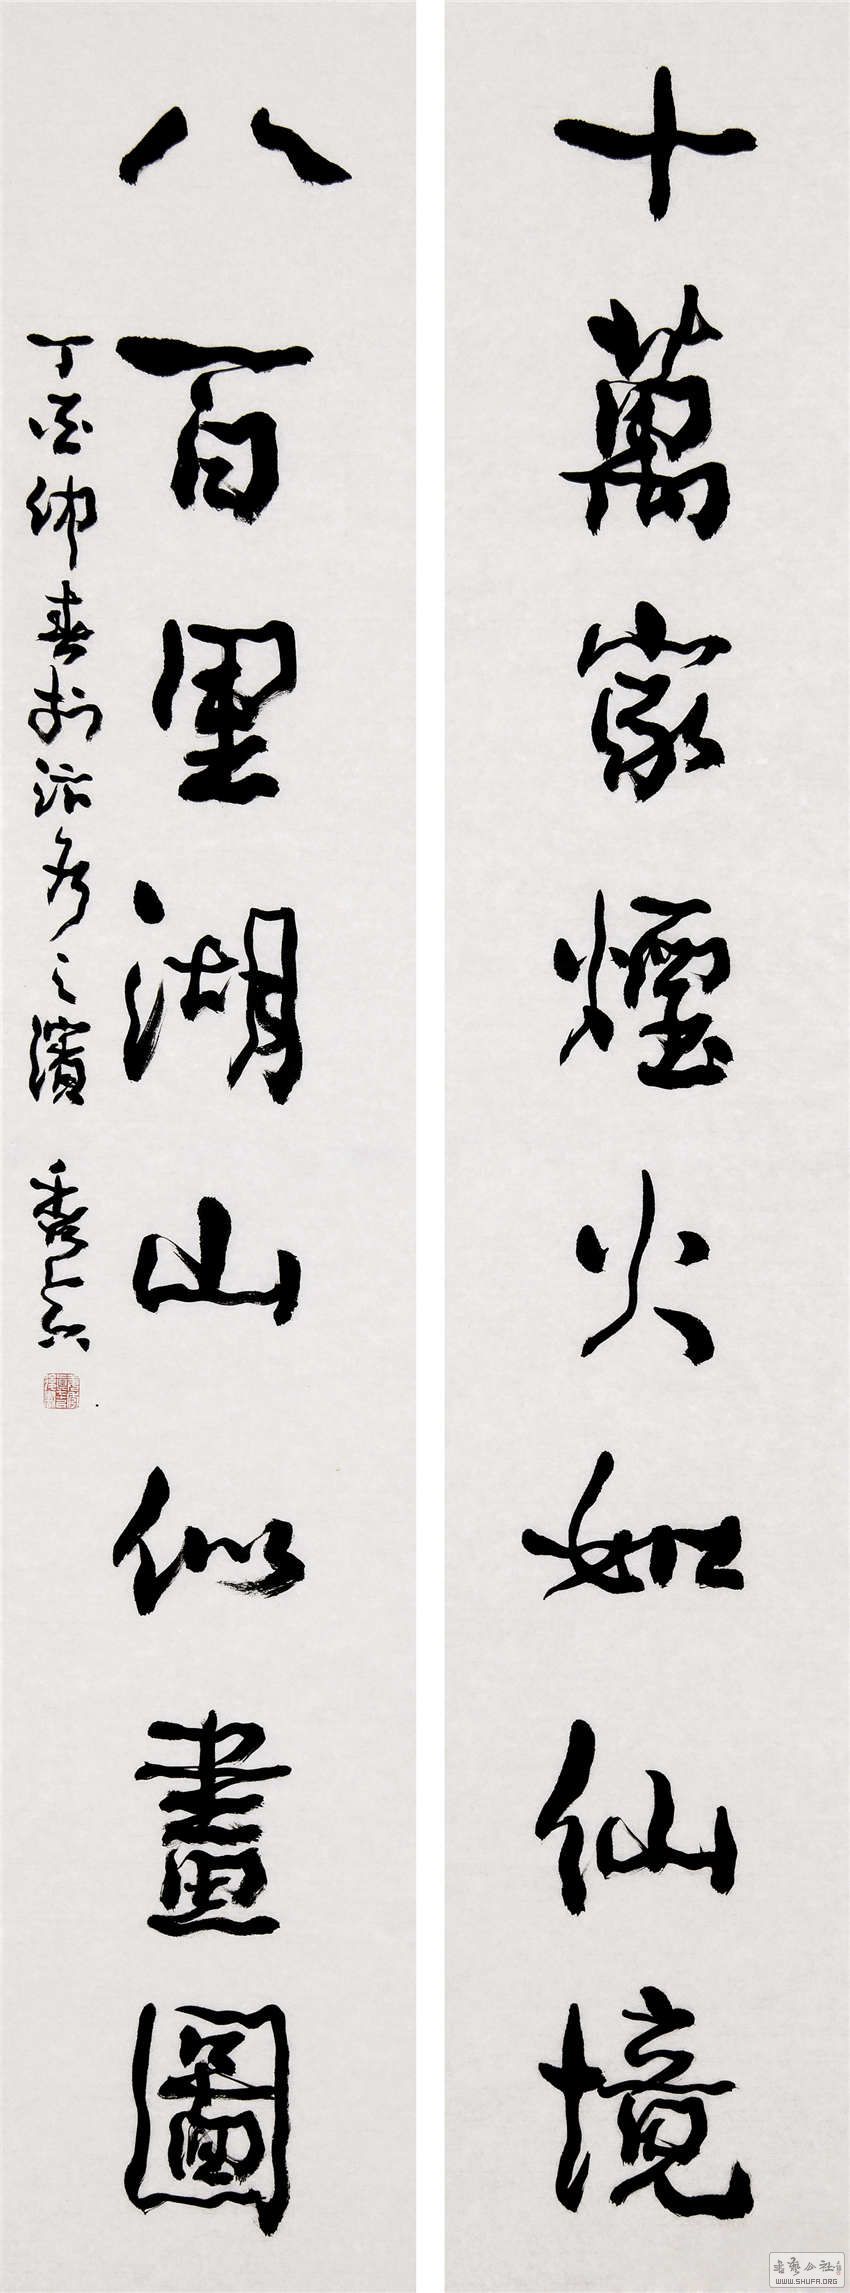 十萬家煙火如仙境
八百里湖山似畫圖
丁酉仲春於
之濱
書藝公社
WWW.SHUFA.ORG